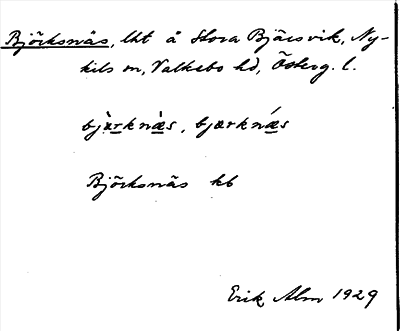 Björksnäs, lht å Stora Bjärsvik, Ny-
kils sn, Valkebo hd, Österg. l.
bjæ̀rknæ̀s, bjærknǽs
Björksnäs kb
Erik Alm 1929